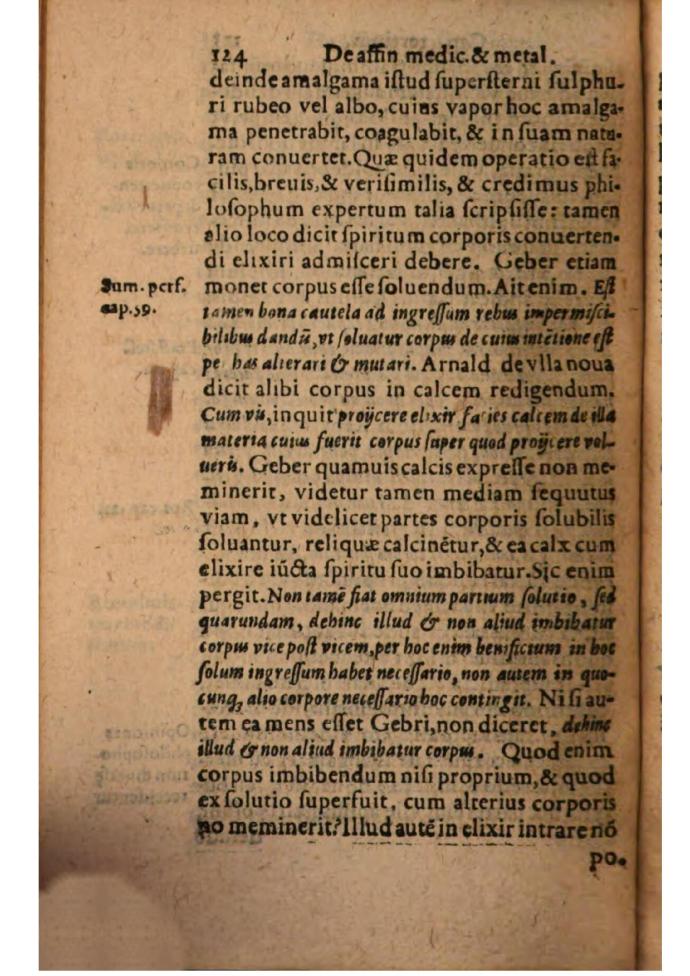 124 De affin medic. & metal.
deinde amalgama iſtud ſuperſterni ſulphu-
ri rubeo vel albo, cuius vapor hoc amalga-
ma penetrabit, coagulabit, & in ſuam natu-
ram conuertet. Quæ quidem operatio eſt fa-
cilis, breuis, & veriſimilis, & credimus phi-
loſophum expertum talia ſcripſiſſe: tamen
alio loco dicit ſpiritum corporis conuerten-
di elixiri admiſceri debere. Geber etiam
Sum. perf. monet corpus eſſe ſoluendum. Ait enim. Eſt
cap. 59. tamen bona cautela ad ingreſſum rebus impermiſci-
bilibus dandū, vt ſoluatur corpus de cuius intētione eſt
pe has alterari & mutari. Arnald de vlla noua
dicit alibi corpus in calcem redigendum.
Cum vis, inquit proijcere elixir facies calcem de illa
materia cuius fuerit corpus ſuper quod proijcere vol-
ueris. Geber quamuis calcis expreſſe non me-
minerit, videtur tamen mediam ſequutus
viam, vt videlicet partes corporis ſolubilis
ſoluantur, reliquæ calcinētur, & ea calx cum
elixire iūcta ſpiritu ſuo imbibatur. Sic enim
pergit. Non tamē fiat omnium partium ſolutio, ſed
quarundam, dehinc illud & non aliud imbibatur
corpus vice poſt vicem, per hoc enim beneficium in hoc
ſolum ingreſſum habet neceſſario, non autem in quo-
cunq; alio corpore neceſſario hoc contingit. Niſi au-
tem ea mens eſſet Gebri, non diceret, dehinc
illud & non aliud imbibatur corpus. Quod enim
corpus imbibendum niſi proprium, & quod
ex ſolutio ſuperfuit, cum alterius corporis
nō meminerit? Illud autē in elixir intrare nō
po-